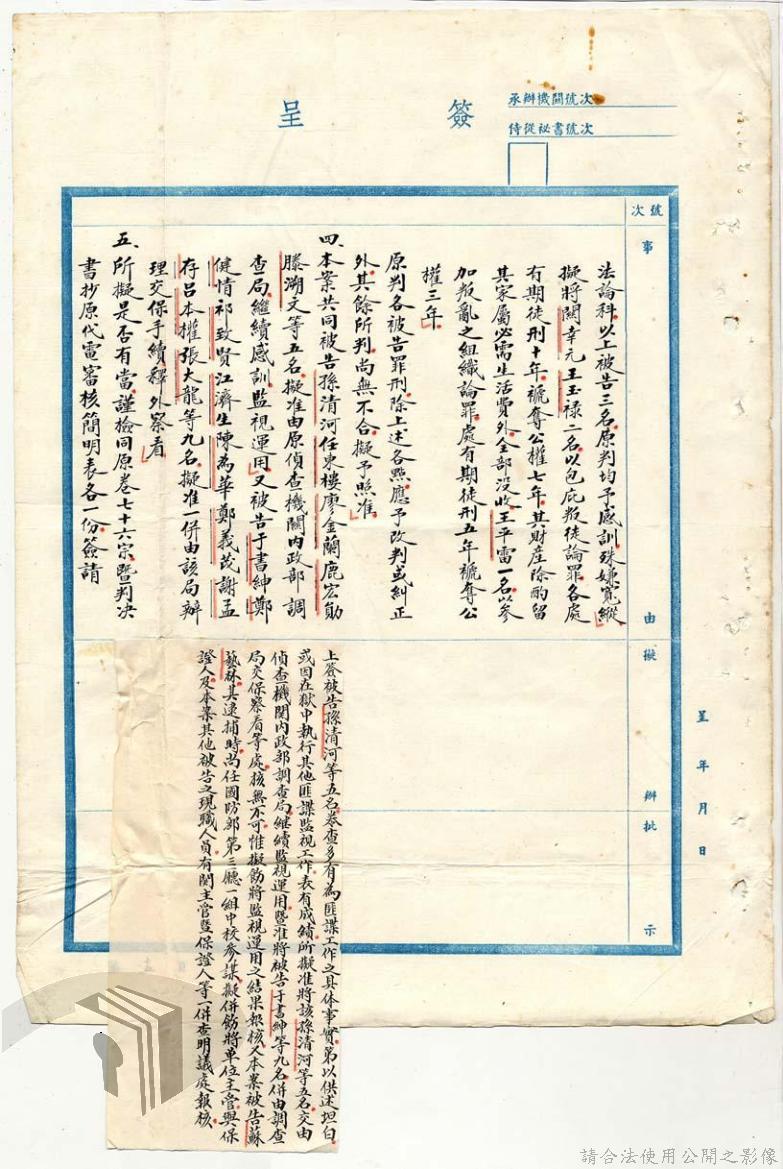 簽呈
承辦機關號次
侍從祕書號次
號次
事由
擬辦
批示
呈 年 月 日
法論科。以上被告三名。原判均予感訓。殊嫌寬縱
擬將關幸元王玉祿二名以包庇叛徒論罪。各處
有期徒刑十年。褫奪公權七年。其財產除酌留
其家屬必需生活費外全部沒收。王平雷一名以參
加叛亂之組織論罪。處有期徒刑五年褫奪公
權三年。
原判各被告罪刑。除上述各點。應予改判或糾正
外。其餘所判。尚無不合擬予照准。
四、本案共同被告孫清河任東樓廖金蘭鹿宏勛
滕溯文等五名。擬准由原偵查機關內政部調
查局。繼續感訓監視運用。又被告于書紳鄭
健情祁致賢江濟生陳為華鄭義茂謝孟
存呂本權張大龍等九名。擬准一併由該局辦
理交保手續釋外察看。
五、所擬是否有當。謹檢同原卷七十六宗暨判決
書抄原代電審核簡明表各一份。簽請
上簽被告孫清河等五名。卷查多有為匪諜工作之具体事實。第以供述坦白
或因在獄中執行其他匪諜監視工作。表有成績。所擬准將該孫清河等五名交由
偵查機關內政部調查局。繼續監視運用。暨准將被告于書紳等九名。併由調查
局交保察看等處。核無不可。惟擬飭將監視運用之結果報核。又本案被告蘇
藝林。其逮捕時尚任國防部第三廳一組中校參謀。擬併飭將單位主管與保
證人。及本案其他被告之現職人員。有關主管暨保證人等一併查明議處報核。
請合法使用公開之影像